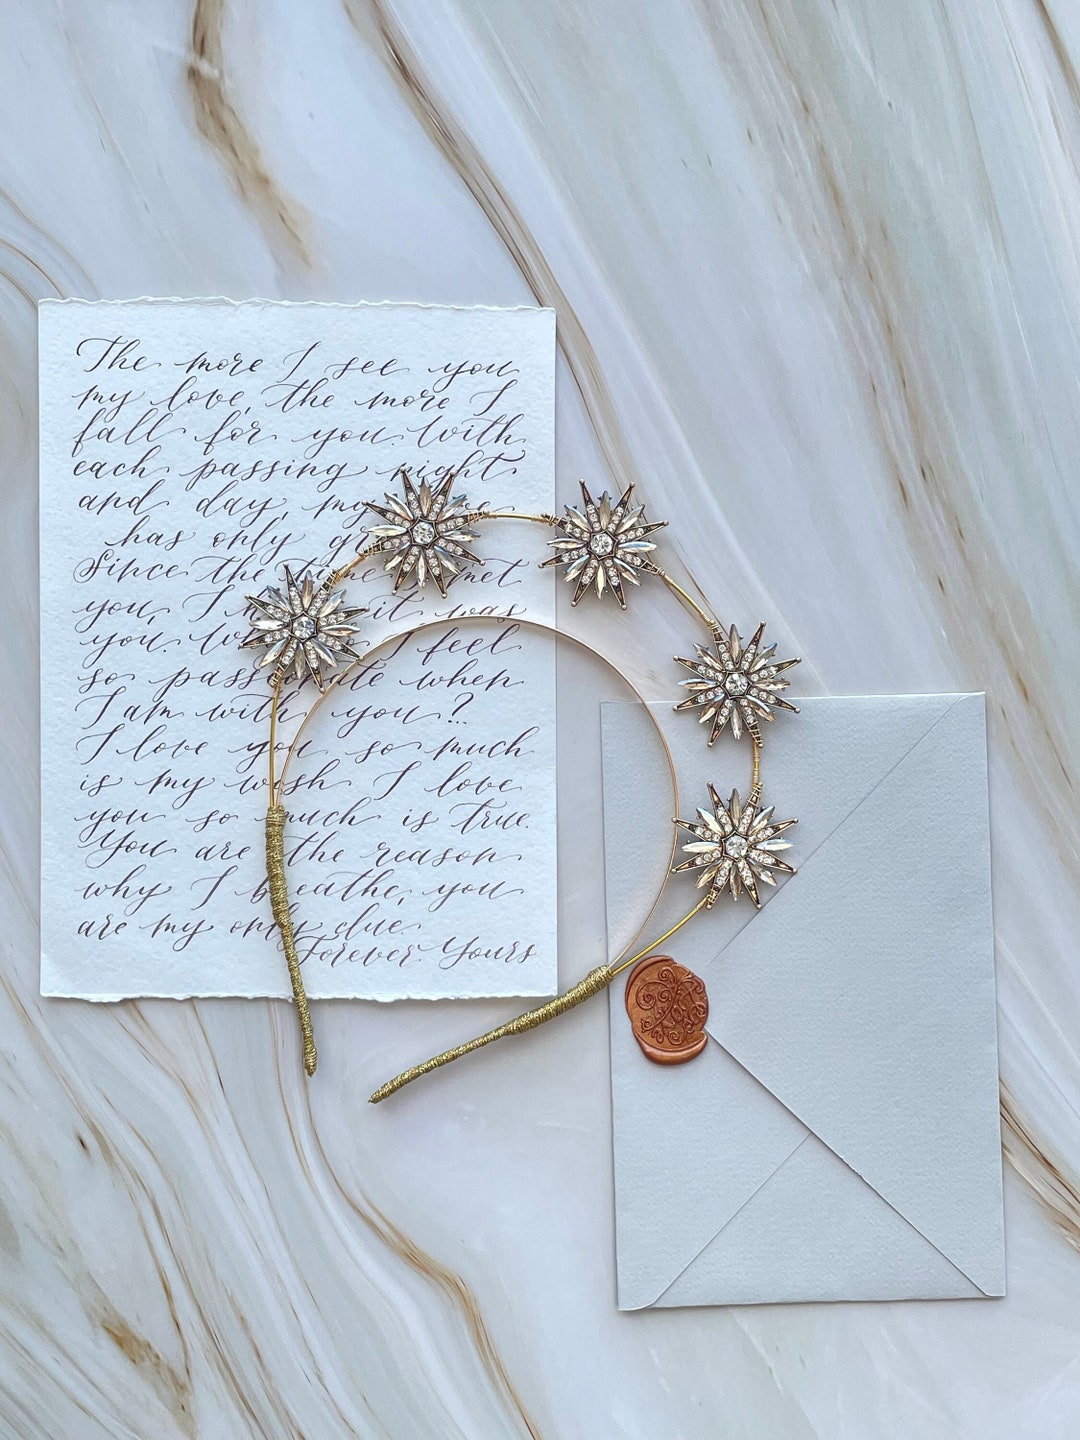 The more I see you
my love, the more I
fall for you. With
each passing night
and day, my
has only
Since the time met
you, I it was
you. I feel
so passionate when
I am with you?..
I love you so much
is my wish I love
you so much is true.
You are the reason
why I breathe, you
are my only clue.
Forever Yours